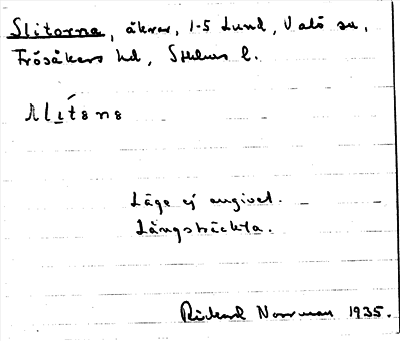 Slitorna, åkrar, 1-5 Lund, Valö sn,
Frösåkers hd, Sthlms l.
Läge ej angivet.
Långsträckta.
Rickard Norrman 1935.